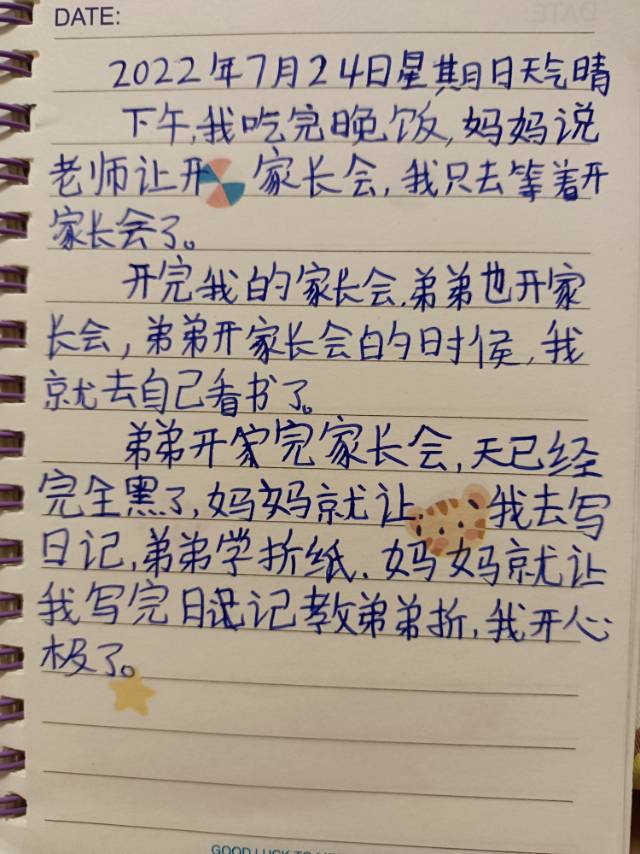 DATE:
2022年7月24日星期日天气晴
下午,我吃完晚饭,妈妈说
老师让开家长会,我只去等着开
家长会了。
开完我的家长会,弟弟也开家
长会,弟弟开家长会的时侯,我
就去自己看书了。
弟弟开家完家长会,天已经
完全黑了,妈妈就让我去写
日记,弟弟学折纸.妈妈就让
我写完日记教弟弟折,我开心
极了。
GOOD LUCK TO